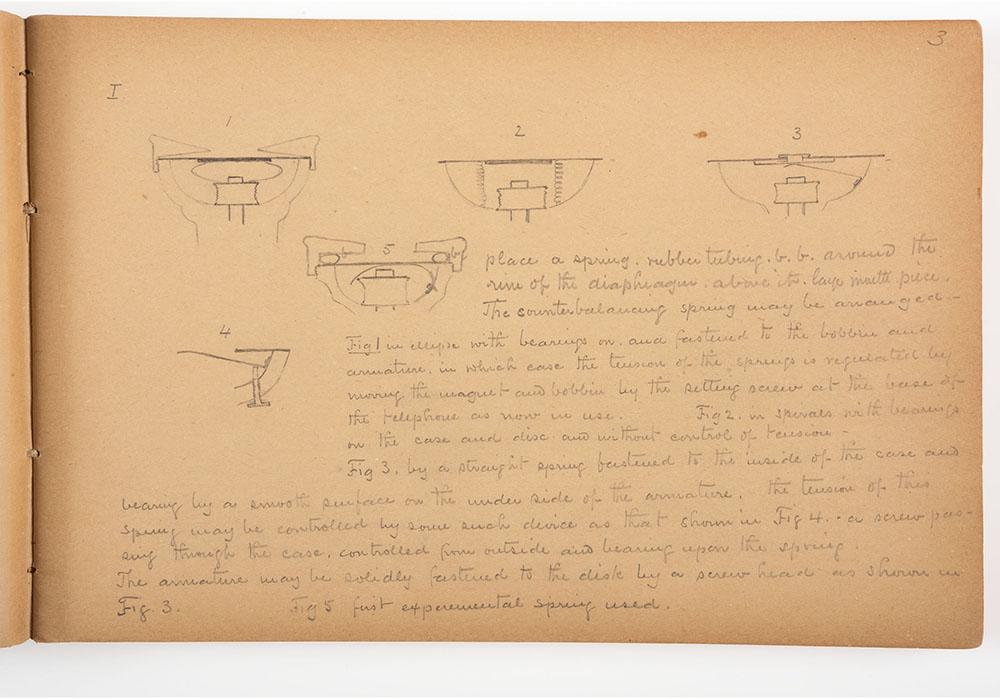 3
I
1
2
3
5
b
b
place a spring. rubber tubing. b. b. around the
rim of the diaphragm. above it. mouth piece.
The counterbalancing spring may be arranged -
4
Fig 1 in ellipse with bearings on. and fastened to the bobbin and
armature. in which case the tension of the springs is regulated by
moving the magnet and bobbin by the setting screw at the base of
the telephone as now in use. Fig 2. in spirals with bearings
on the case and disc and without control of tension -
Fig 3. by a straight spring fastened to the inside of the case and
bearing by a smooth surface on the under side of the armature. The tension of this
spring may be controlled by some such device as that shown in Fig 4. - a screw pas-
sing through the case. controlled from outside and bearing upon the spring.
The armature may be solidly fastened to the disk by a screw head as shown in
Fig. 3. Fig 5 first experemental spring used.